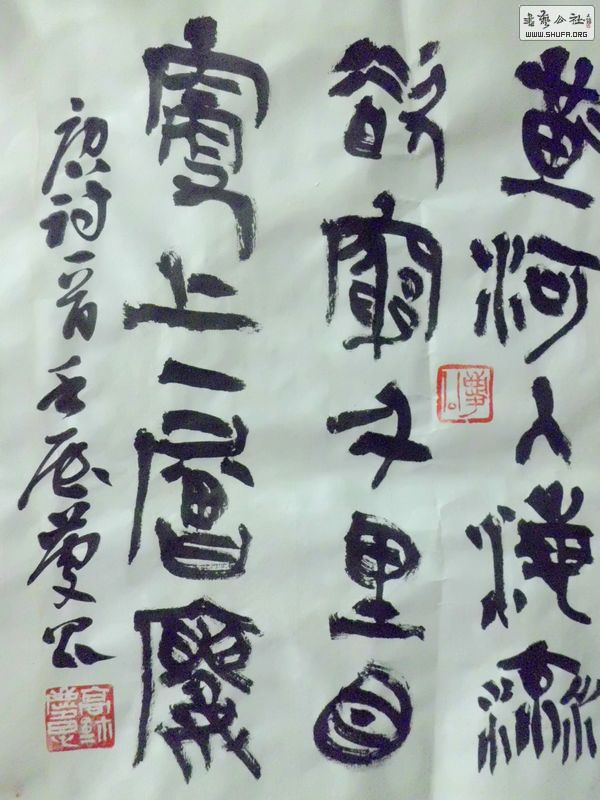 黄河入海流
欲窮千里目
更上一層樓
唐诗一首壬辰夢
書藝公社
WWW.SHUFA.ORG